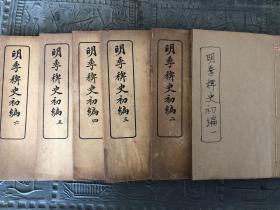 明季稗史初编一
明季稗史初编二
明季稗史初编三
明季稗史初编四
明季稗史初编五
明季稗史初编六